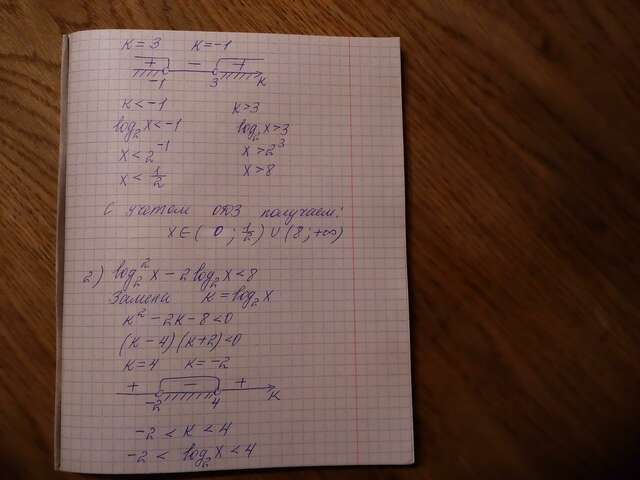 к = 3 к = -1
+ - +
-1 3 к
к < -1 к > 3
log₂x < -1 log₂x > 3
x < 2⁻¹ x > 2³
x < 1/2 x > 8
С учетом ОДЗ получаем:
x ∈ ( 0 ; 1/2 ) ∪ (8 ; +∞)
2) log₂²x - 2log₂x < 8
Замена к = log₂x
к² - 2к - 8 < 0
(к - 4)(к + 2) < 0
к = 4 к = -2
+ - +
-2 4 к
-2 < к < 4
-2 < log₂x < 4